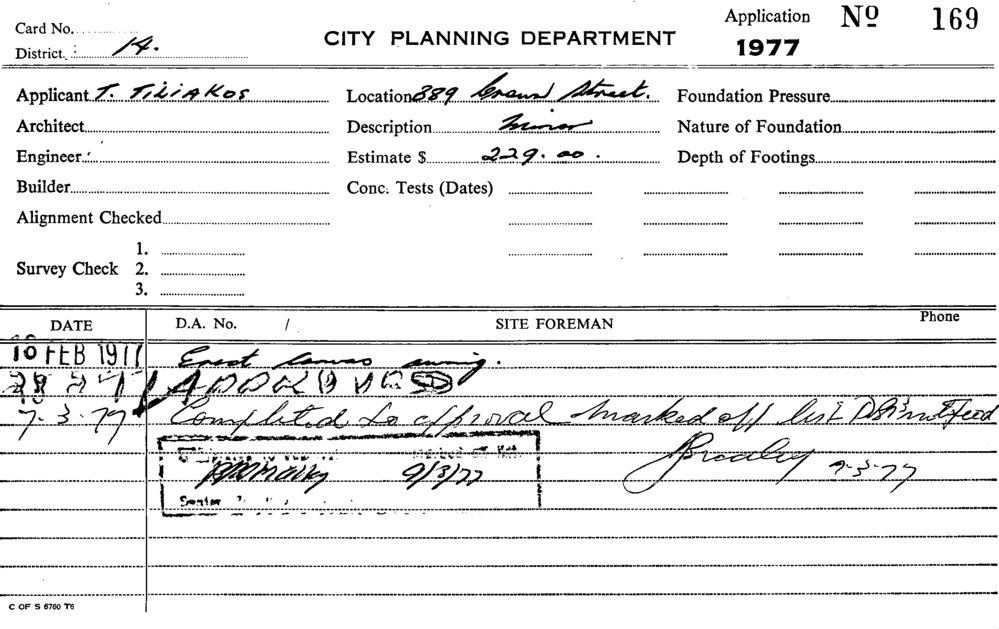 Card No.
District. 14.
CITY PLANNING DEPARTMENT
Application Nº 169
1977
Applicant T. TILIAKOS Location 389 Crown Street. Foundation Pressure
Architect Description Minor Nature of Foundation
Engineer Estimate $ 229.00. Depth of Footings
Builder Conc. Tests (Dates)
Alignment Checked
Survey Check 1.
2.
3.
DATE D.A. No. / SITE FOREMAN Phone
10 FEB 1977 Erect canvas awning.
APPROVED
7.3.77 Completed to approval marked off list
9-3-77
9/3/77
Senior
C OF S 6760 T6